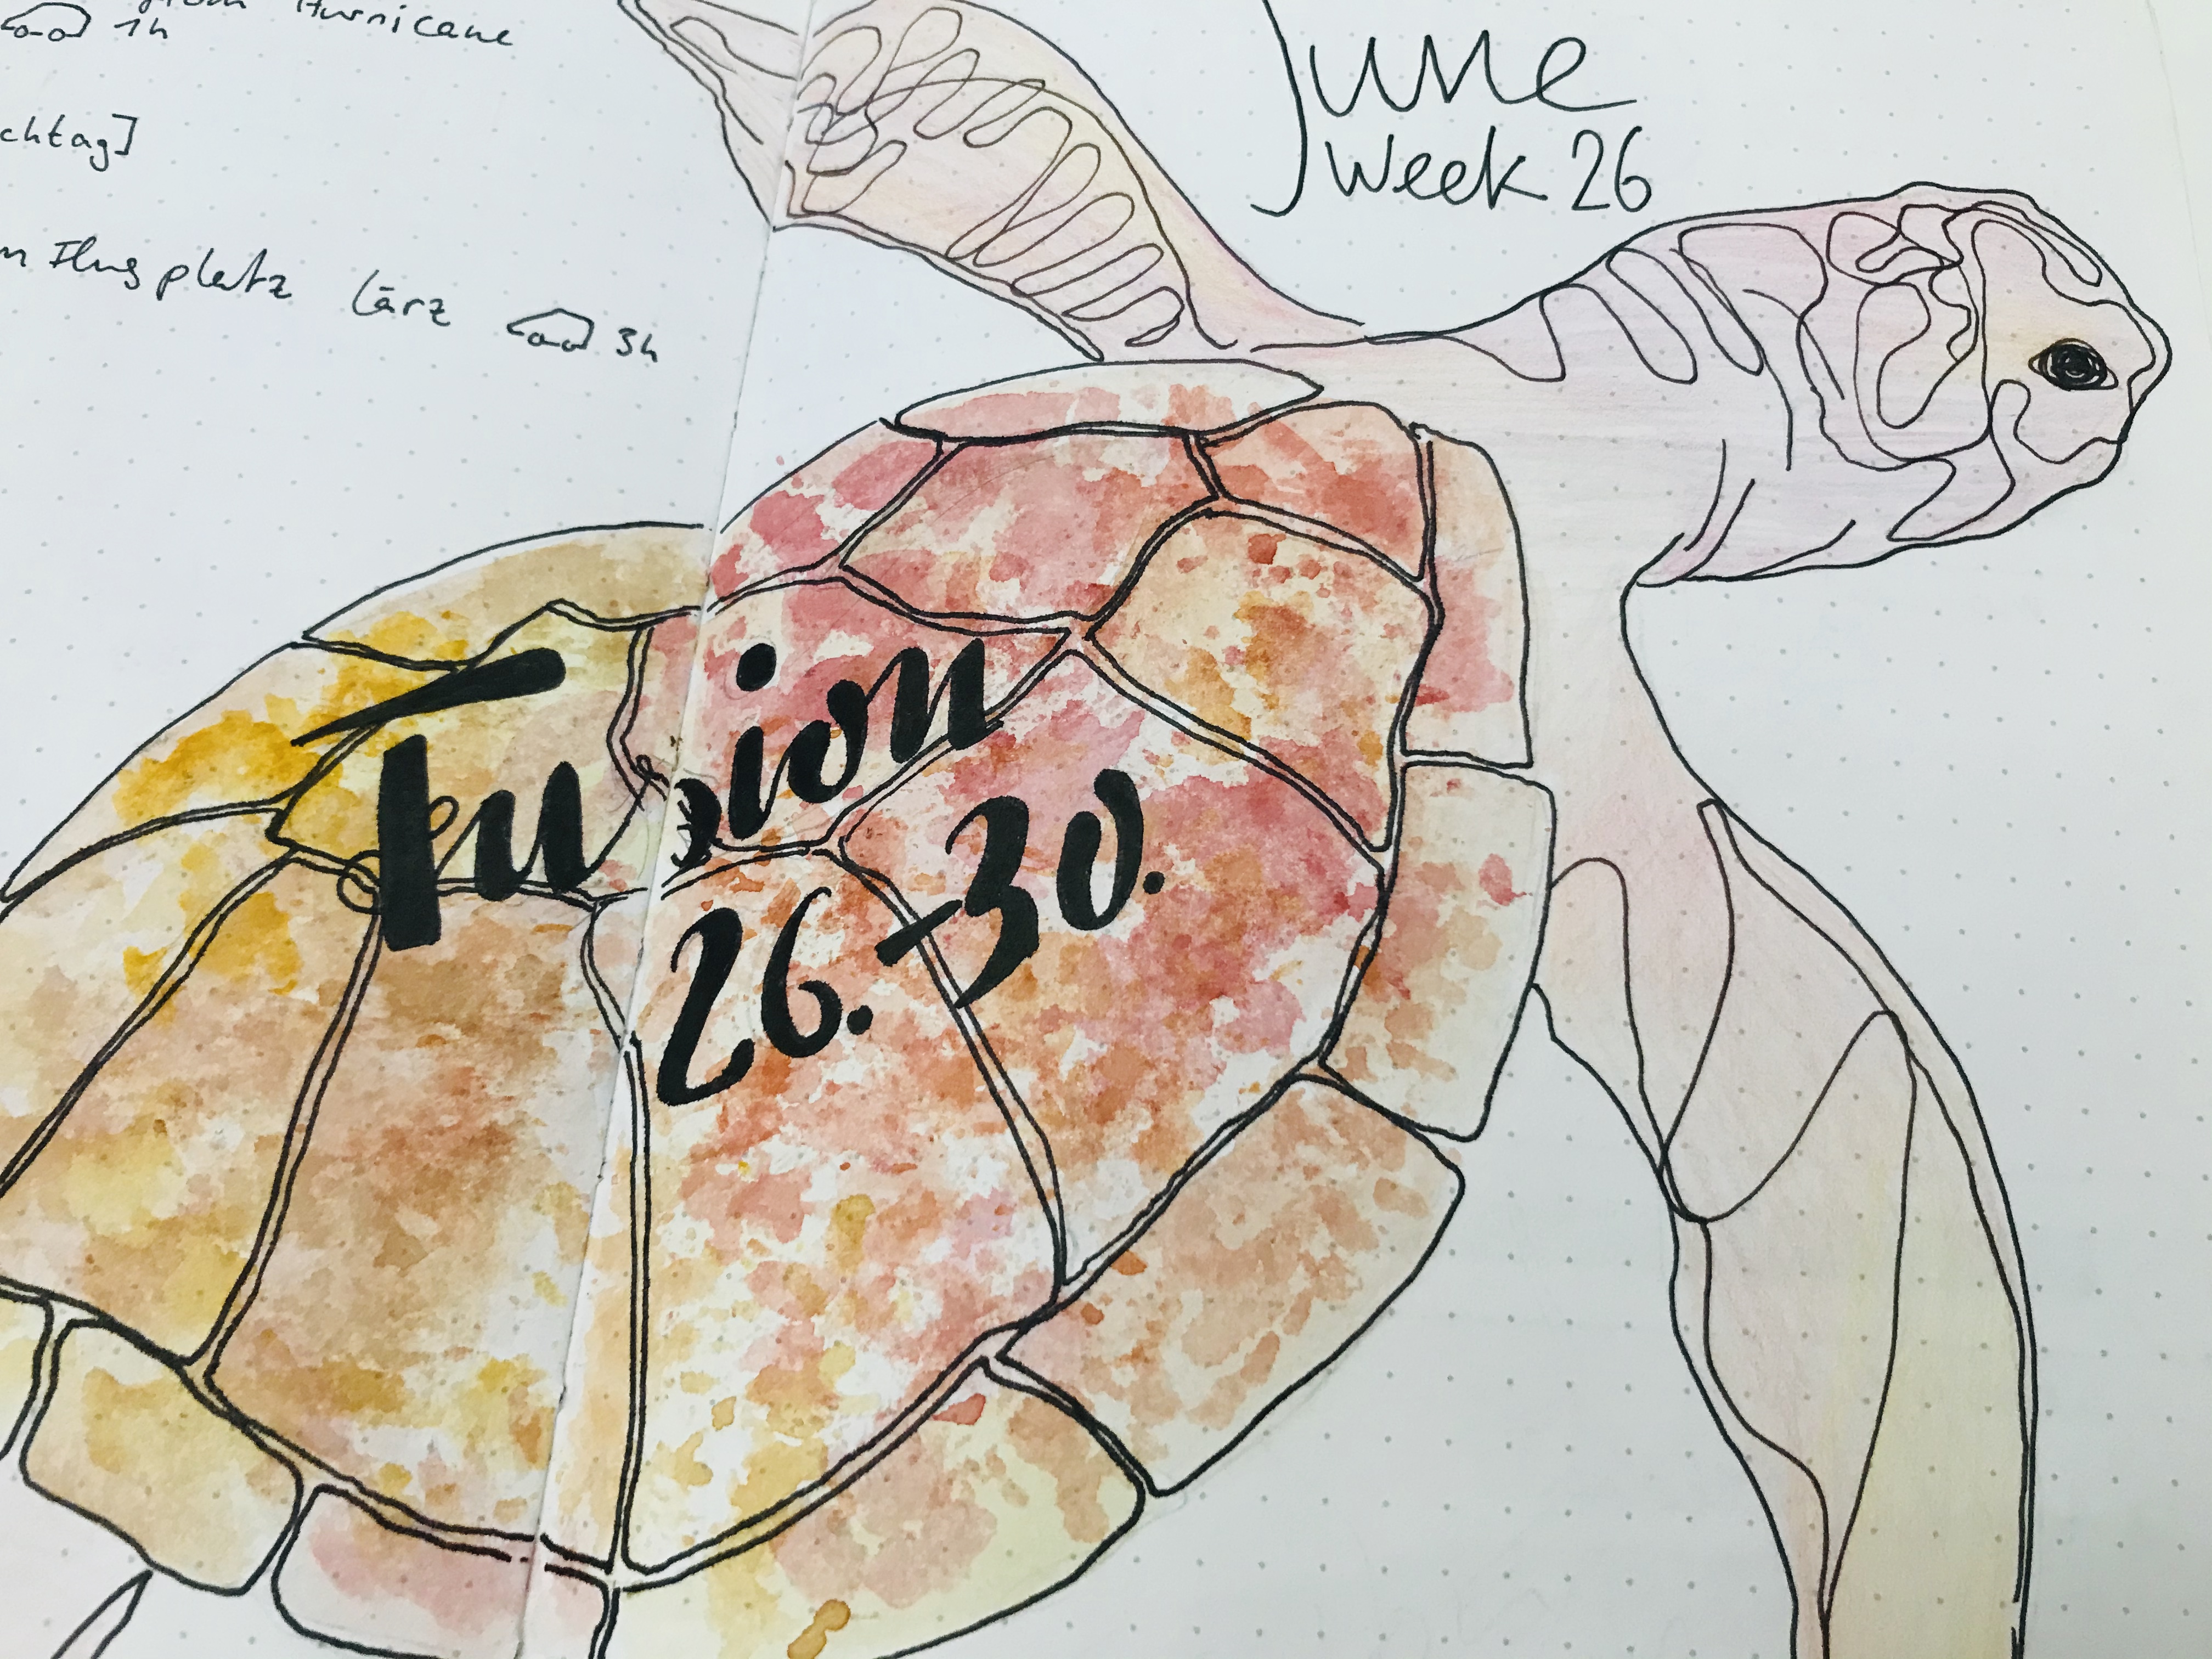 from Hurricane
1h
chtag]
Flugplatz Lärz 3h
June
Week 26
Fusion
26.-30.